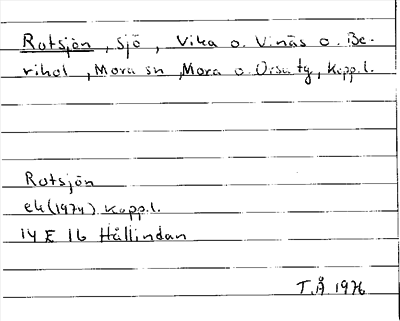 Rotsjön, sjö, Vika o. Vinäs o. Be-
rihol, Mora sn, Mora o. Orsa tg, Kopp. l.
Rotsjön
ek (1974) Kopp. l.
14 E 16 Hållindan
T.Å. 1976